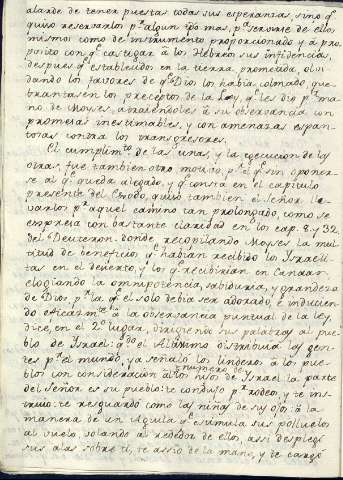 alarde de tener puestas todas sus esperanzas, sino qᵉ
quiso reservarlos pʳ algun tpõ mas, pᵃ servirse de ellos
mismos como de instrumento proporcionado y à pro-
posito con qᵉ castigar à los Hebreos sus infidencias,
despues qᵉ establecidos en la tierra prometida, olvi-
dando los favores de qᵉ Dios los havia colmado que-
brantasen los preceptos de la Ley, qᵉ les dio pʳ ma-
no de Moyses, atraiendoles à su observancia con
promesas inestimables, y con amenazas espan-
tosas contra los transgresores.
El cumplimᵗᵒ de las unas, y la egecucion de las
otras, fue tambien otro motivo, pʳ el qᵉ sin oponer-
se al qᵉ queda alegado, y qᵉ consta en el capitulo
presente del Exodo, quiso tambien el Señor lle-
varlos pʳ aquel camino tan prolongado, como se
expresa con bastante claridad en los cap. 8 y 32.
del Deuteron. donde recopilando Moyses la mul-
titud de beneficios qᵉ havian recibido los Israeli-
tas en el desierto, y los qᵉ recibirian en Canaan,
elogiando la omnipotencia, sabiduria, y grandeza
de Dios, pʳ la qᵉ el solo debia ser adorado, è inducien-
do eficazmᵗᵉ à la observancia puntual de la ley,
dice, en el 2º lugar, dirigiendo sus palabras al pue-
blo de Israel: qᵈᵒ el Altisimo distribuia las gen-
tes pʳ el mundo, ya señalò los linderos à los pue-
blos con consideracion al numero de los hijos de Israel la parte
del Señor es su pueblo: te condujo pʳ rodeos, y te ins-
truiò: te resguardò como las niñas de sus ojos: à la
manera de un Aguila qᵉ estimula sus polluelos
al vuelo, volando al rededor de ellos, assi desplegò
sus alas sobre ti, te assiò de la mano, y te cargò